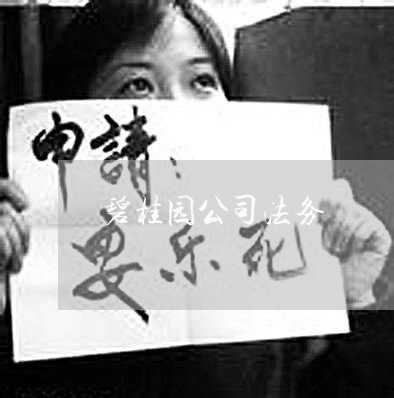 申請：
碧桂园公司法务
要乐死